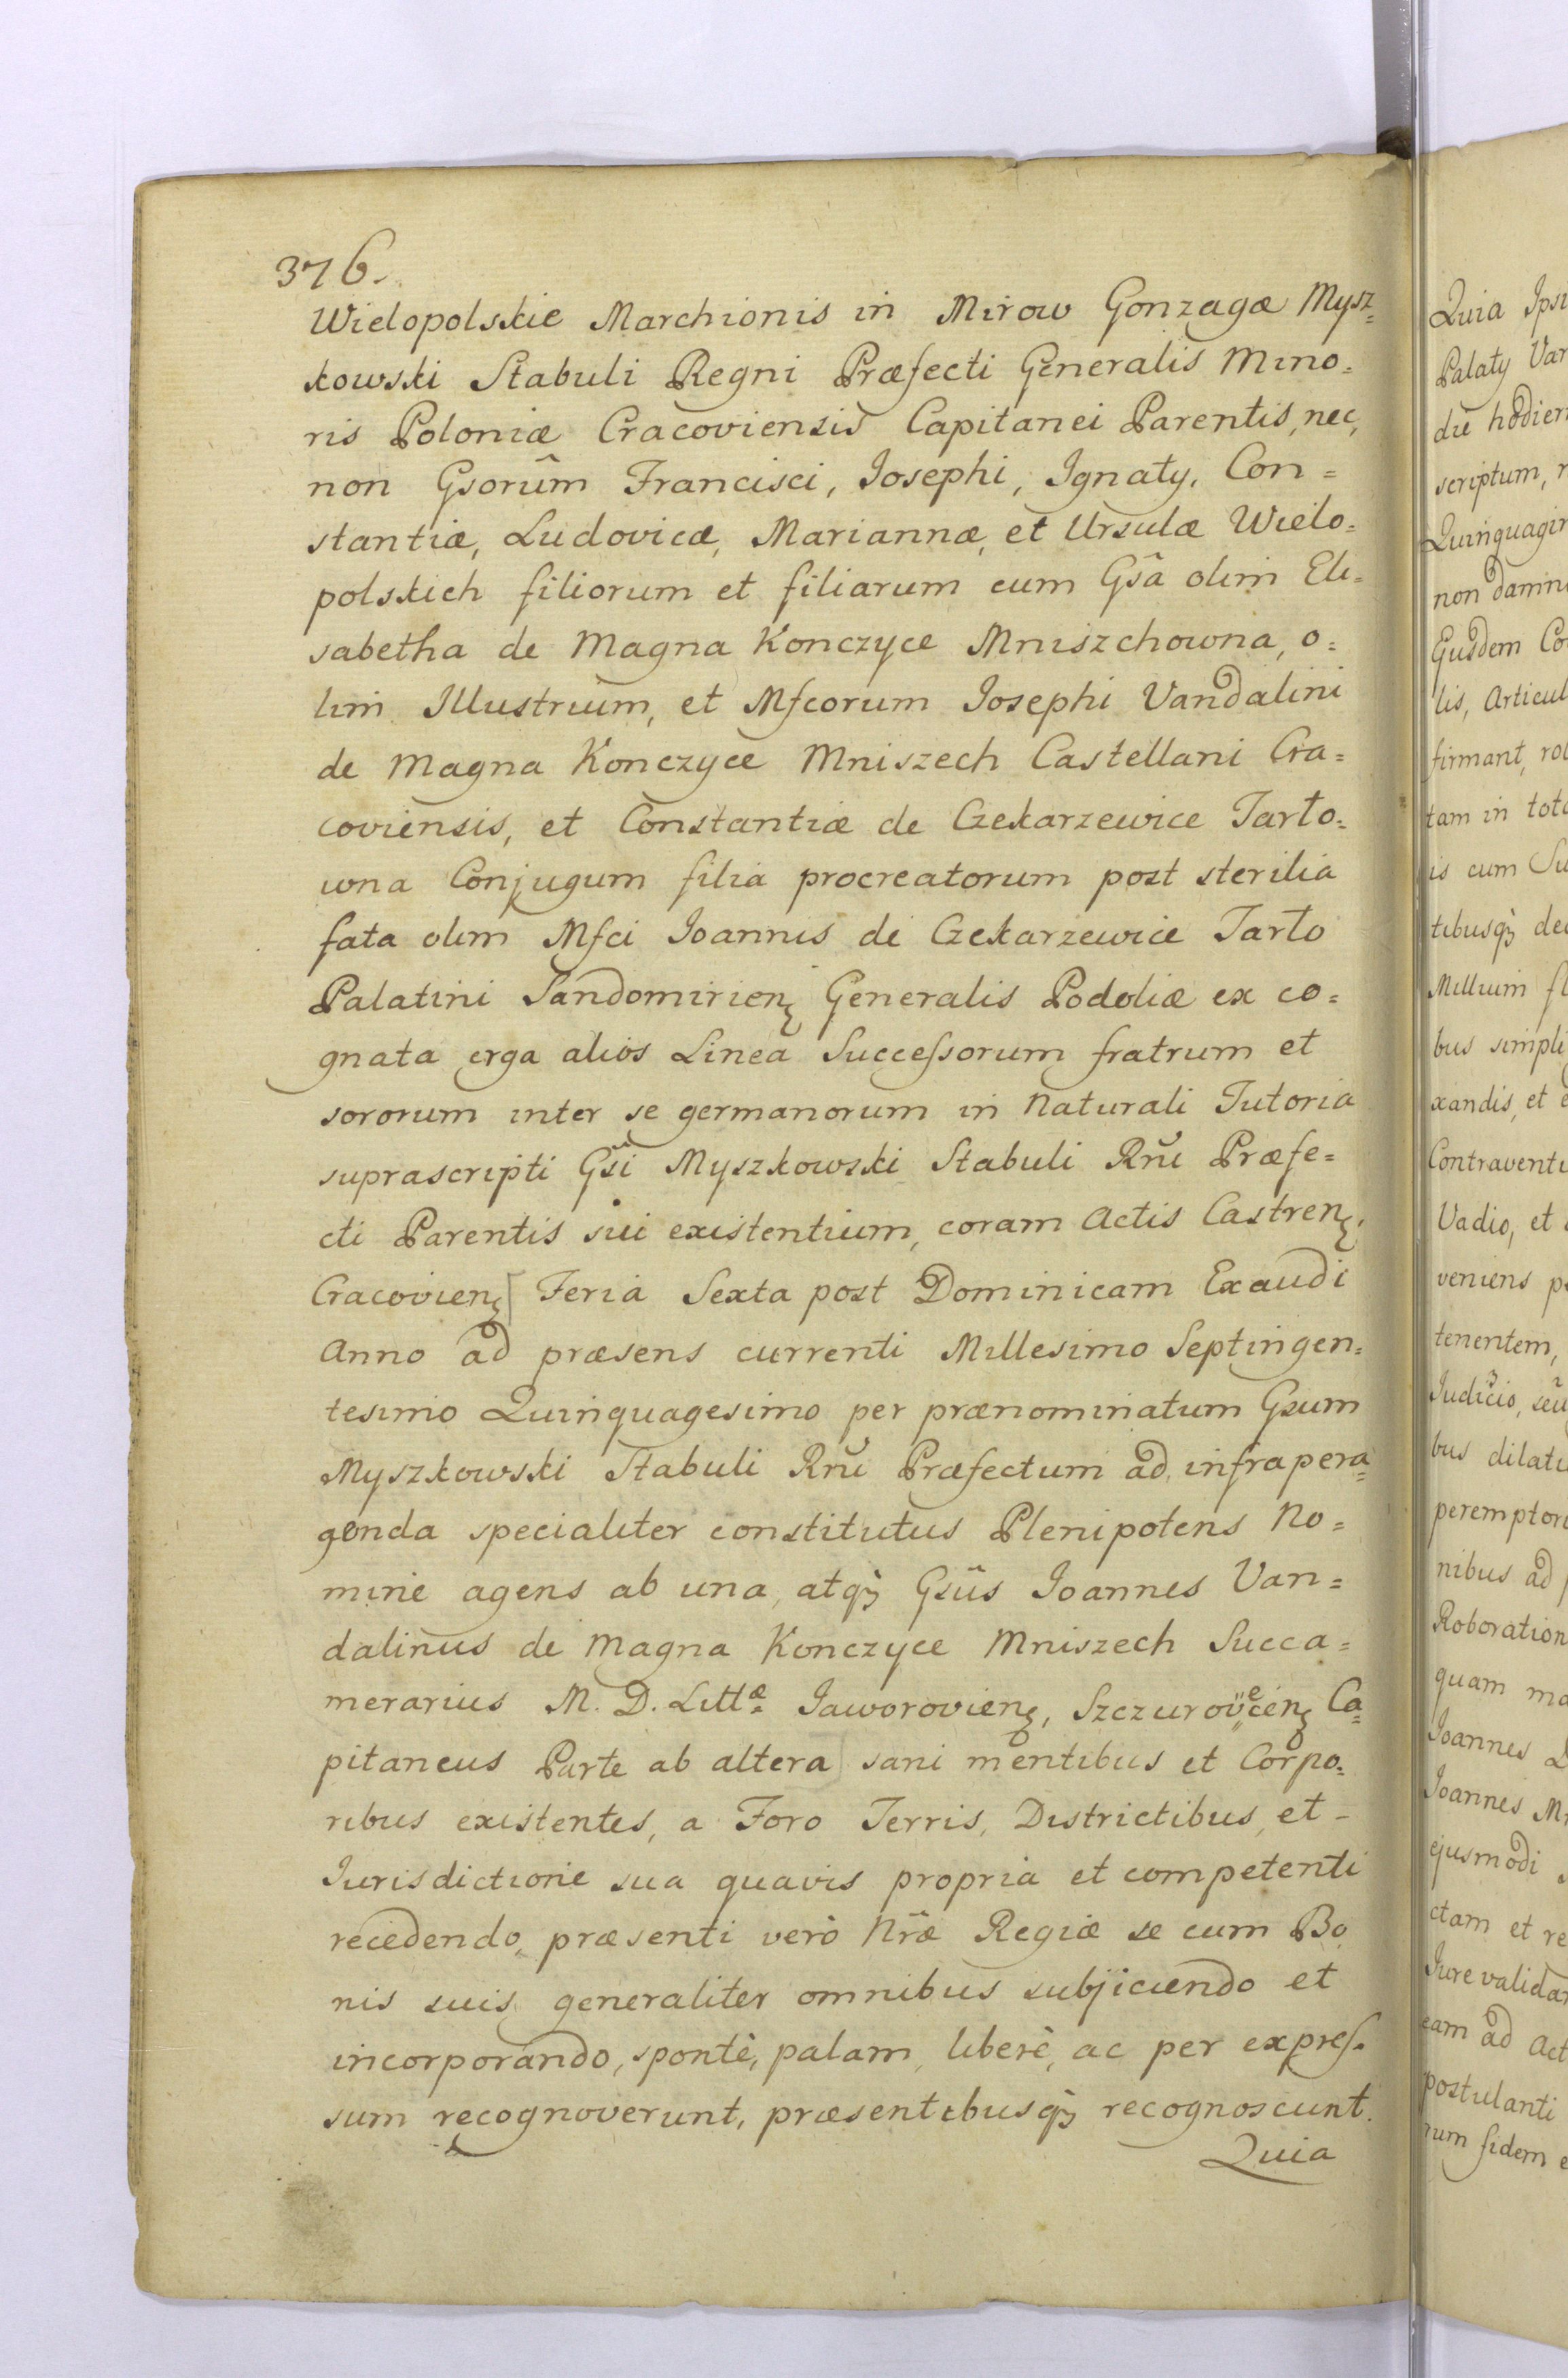 376.
Wielopolskie Marchionis in Mirow Gonzagæ Mysz=
kowski Stabuli Regni Præfecti Generalis Mino=
ris Poloniæ Cracoviensis Capitanei Parentis, nec,
non Gsorum̂ Francisci, Josephi, Ignaty, Con=
stantiæ, Ludovicæ, Mariannæ, et Ursulæ Wielo=
polskich filiorum et filiarum cum Gsâ olim Eli=
sabetha de Magna Konczyce Mniszchowna, o=
lim Illustrium, et Mfcorum Josephi Vandalini
de Magna Konczyce Mniszech Castellani Cra=
coviensis, et Constantiæ de Czekarzewice Tarło=
wna Conjugum filia procreatorum post sterilia
fata olim Mfci Joannis de Czekarzewice Tarło
Palatini Sandomirienȝ Generalis Podoliæ ex co=
gnata erga alios Linea Succeſsorum fratrum et
sororum inter se germanorum in Naturali Tutoria
suprascripti Gsi Myszkowski Stabuli Rnĭ Præfe=
cti Parentis sui existentium, coram Actis Castrenȝ,
Cracovienȝ[ Feria Sexta post Dominicam Exaudi
Anno ad præsens currenti Millesimo Septingen=
tesimo Quinquagesimo per prænominatum Gsum
Myszkowski Stabuli Rnĭ Præfectum ad infra pera=
genda specialiter constitutus Plenipotens No=
mine agens ab una, atqȝ Gsus Joannes Van=
dalinus de Magna Konczyce Mniszech Succa=
merarius M. D. Littæ Jaworovienȝ, Szczurovecenȝ Ca=
pitaneus Parte ab altera] sani mentibus et Corpo=
ribus existentes, a Foro Terris, Districtibus, et -
Jurisdictione sua quavis propria et competenti
recedendo, præsenti verò Nræ Regiæ se cum Bo
nis suis generaliter omnibus subjiciendo et
incorporando, spontè, palam, liberè, ac per expreſ=
sum recognoverunt, præsentibusqȝ recognoscunt.
Quia
Quia
Palaty
scriptum,
non
Ejusdem
lis,
firmant,
tam in
is cum
tibusqȝ
Millium
bus
xandis, et
Vadio, et
veniens
tenentem,
Judicio, seu
bus
nibus ad
quam
Joannes
Joannes
ejusmodi
ctam et
Jure
eam ad
postulanti
rum fidem